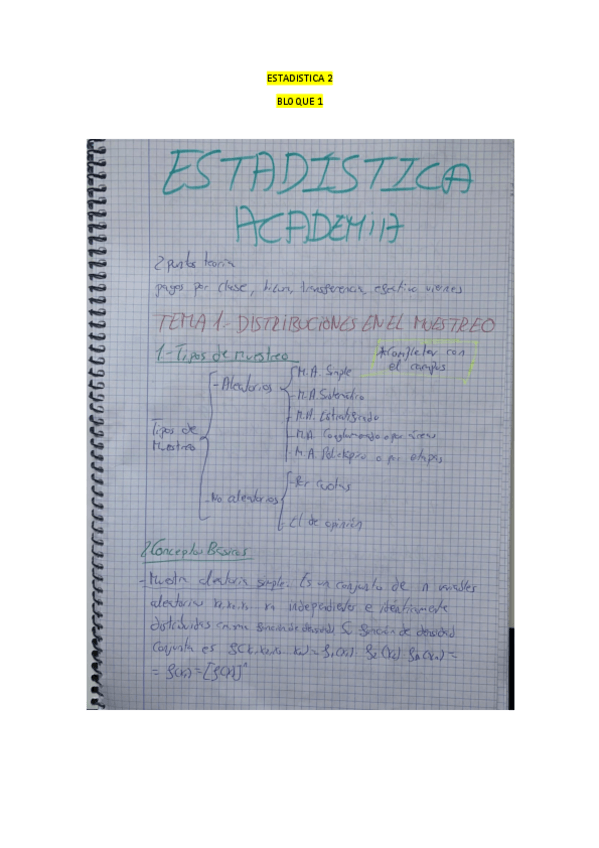 ESTADISTICA 2
BLOQUE 1
ESTADISTICA
ACADEMIA
2 puntos teoria
pagos por clase, bizum, transferencia, efectivo viernes
TEMA 1.- DISTRIBUCIONES EN EL MUESTREO
1.- Tipos de muestreo
A completar con
el campus
Tipos de
Muestreo
- Aleatorios
M.A. Simple
- M.A. Sistemático
- M.A. Estratificado
- M.A. Conglomerado o por áreas
- M.A. Polietápico o por etapas
- No aleatorios
- Por cuotas
- El de opinión
2 Conceptos Básicos
- Muestra aleatoria simple. Es un conjunto de n variables
aleatorias independientes e idénticamente
distribuidas con función de densidad
conjunta es